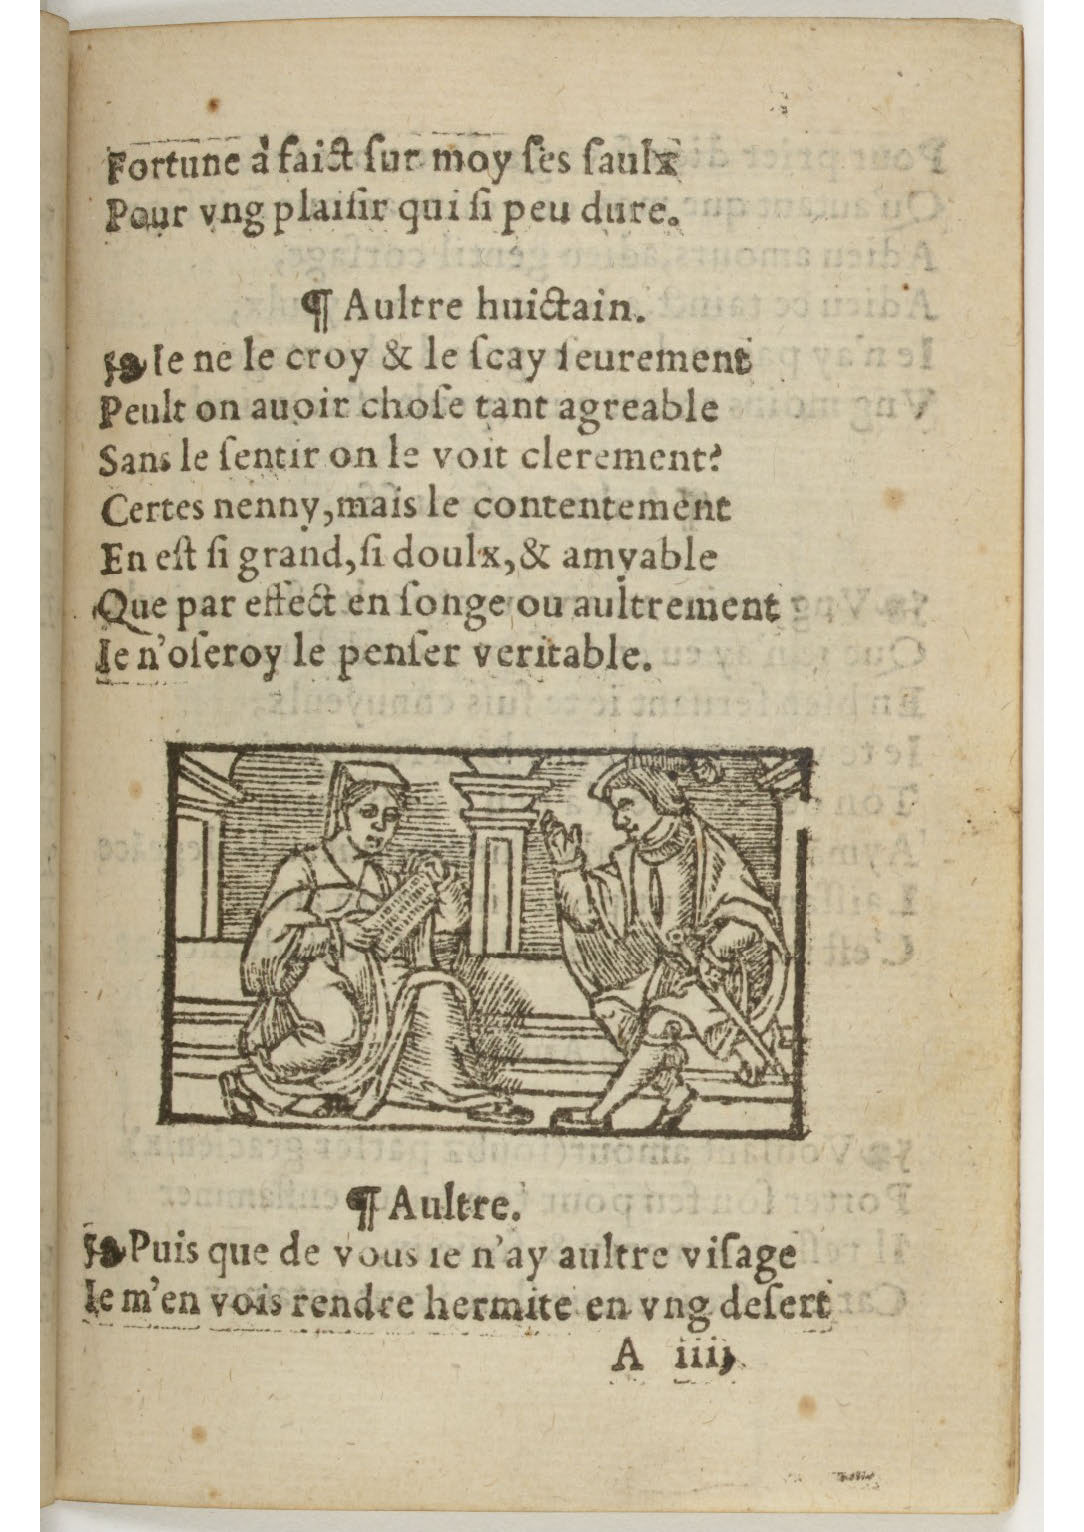 Fortune à faict ſur moy ſes ſaulx
Pour vng plaiſir qui ſi peu dure.
¶ Aultre huictain.
❧ Ie ne le croy & le ſcay ſeurement
Peult on auoir choſe tant agreable
Sans le ſentir on le voit clerement?
Certes nenny, mais le contentement
En eſt ſi grand, ſi doulx, & amyable
Que par effect en ſonge ou aultrement
Ie n'oſeroy le penſer veritable.
¶ Aultre.
❧ Puis que de vous ie n'ay aultre viſage
Ie m'en vois rendre hermite en vng deſert
A iiij